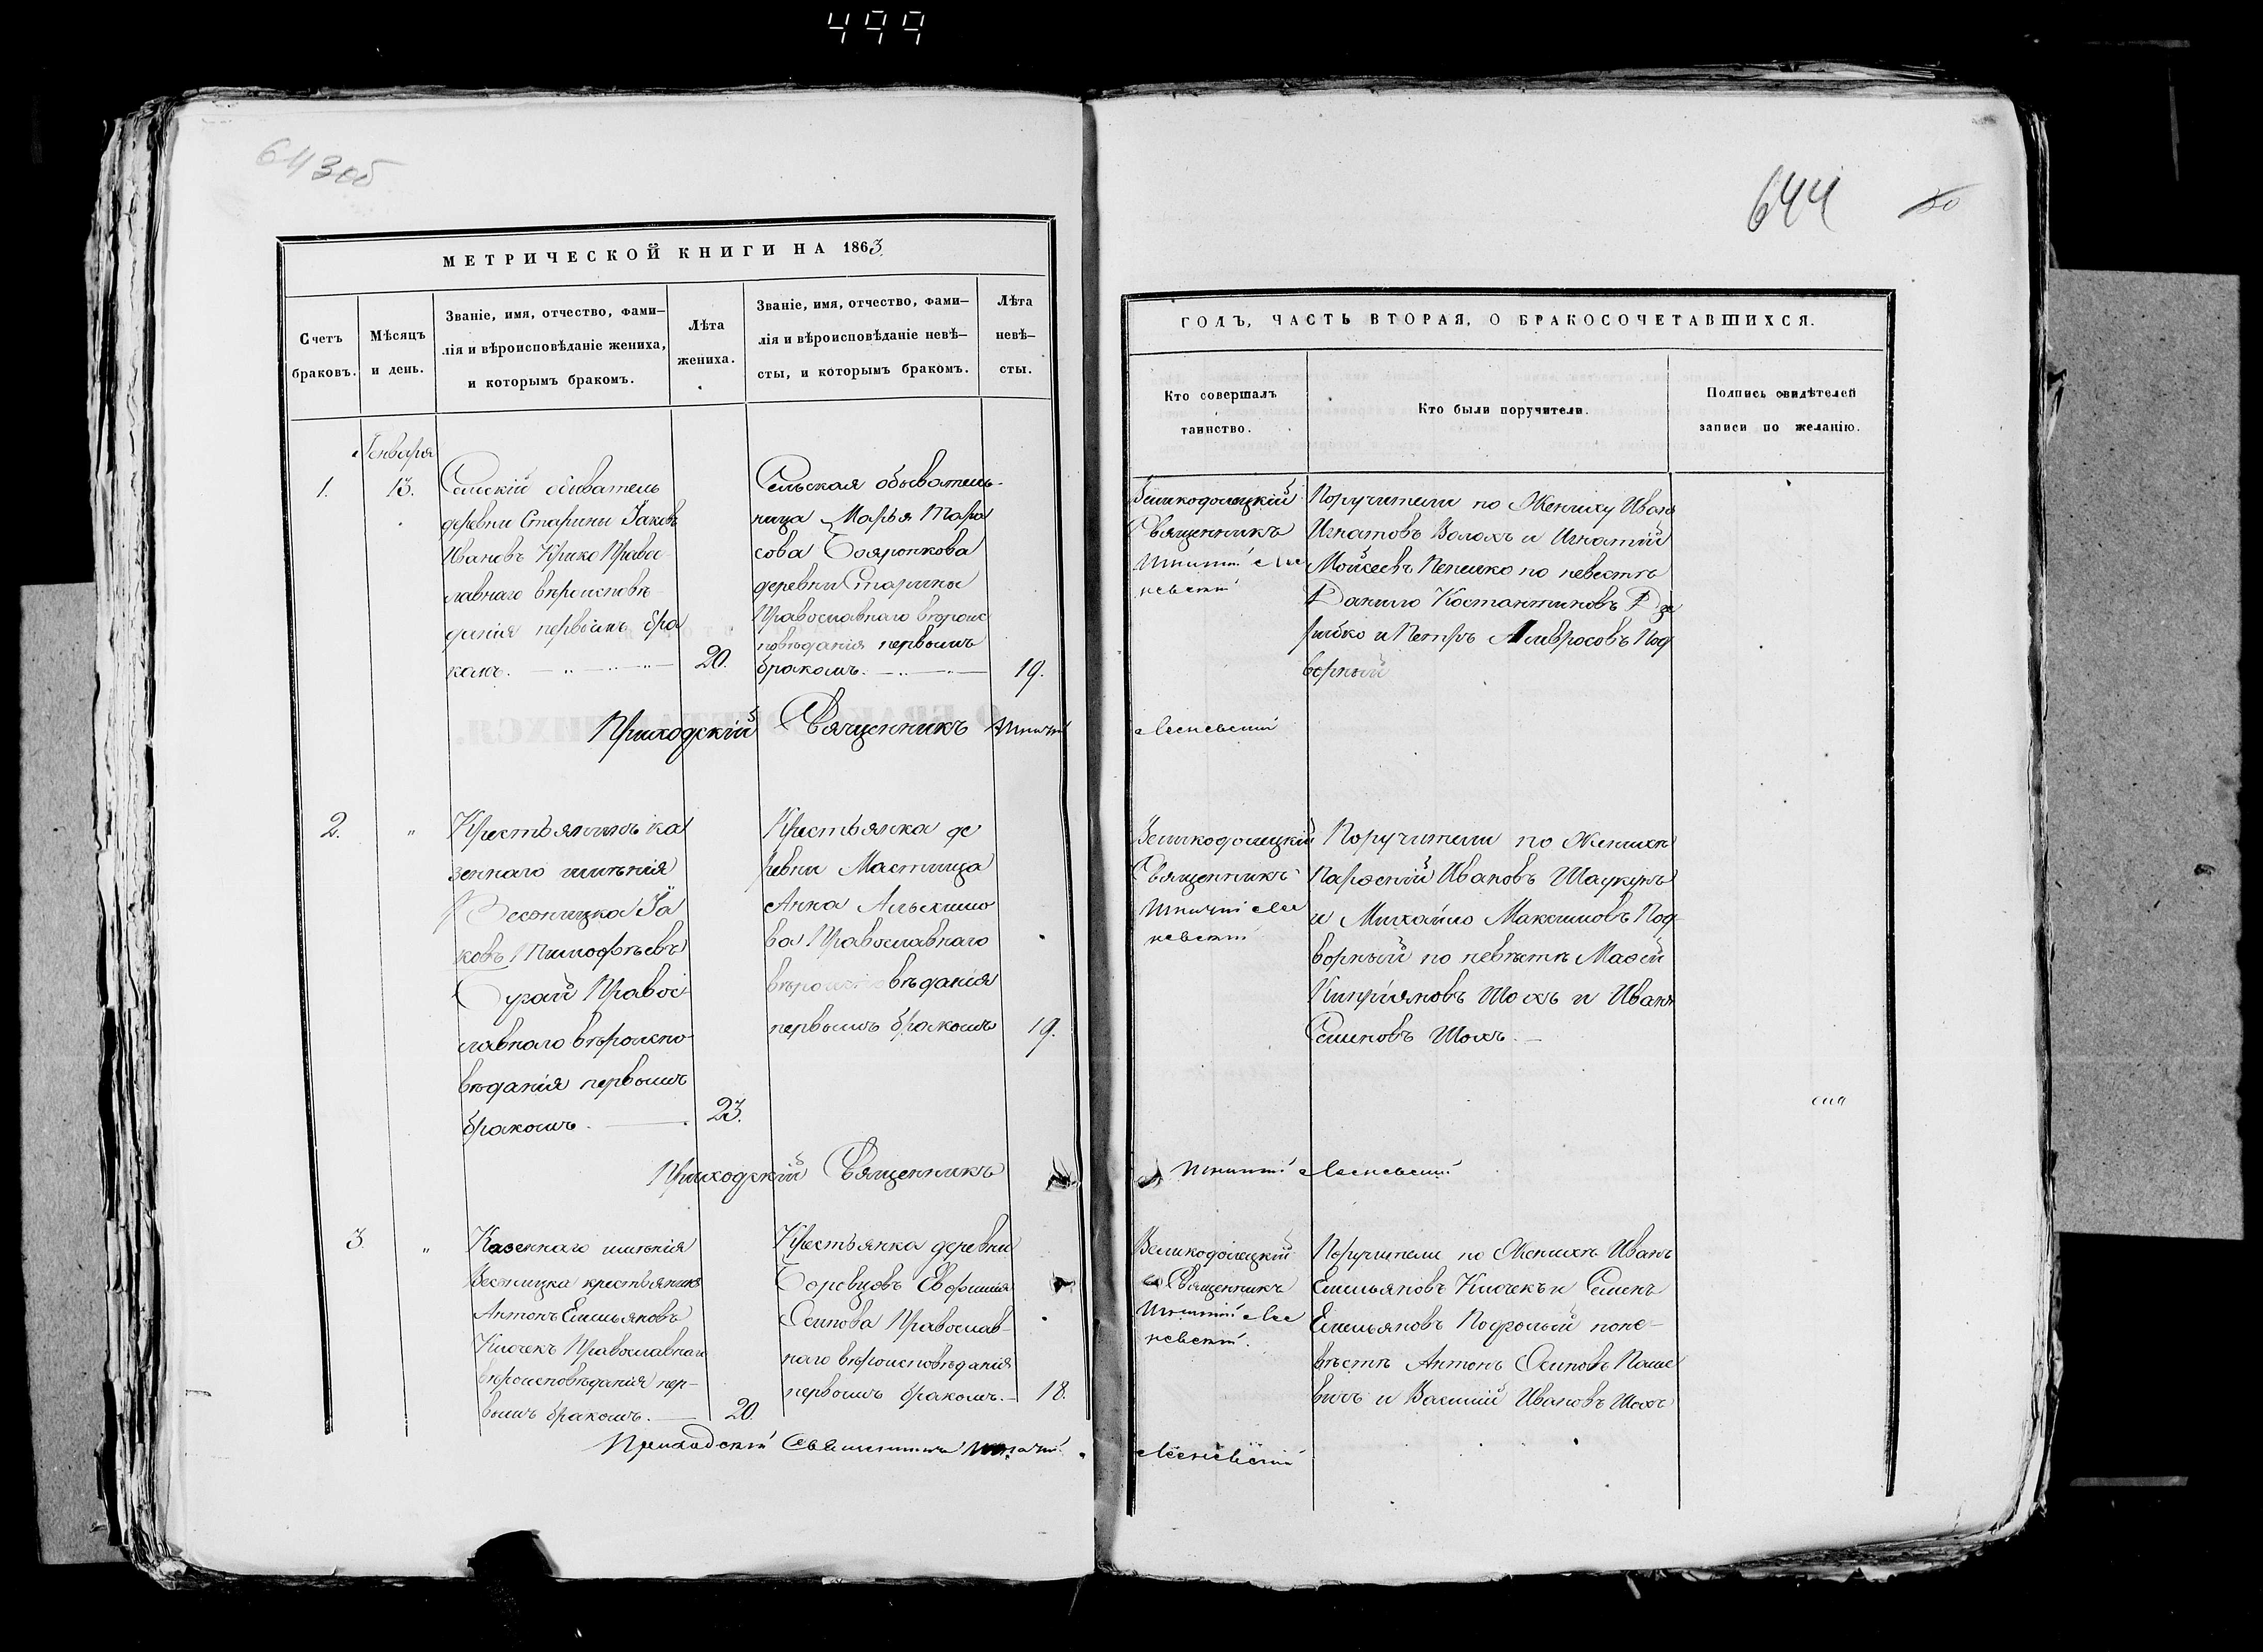 499
643об
644
50
МЕТРИЧЕСКОЙ КНИГИ НА 1863.
Счетъ
браковъ.
Мѣсяцъ
и день.
Званіе, имя, отчество, фами-
лія и вѣроисповѣданіе жениха,
и которымъ бракомъ.
Лѣта
жениха.
Званіе, имя, отчество, фами-
лія и вѣроисповѣданіе невѣ-
сты, и которымъ бракомъ.
Лѣта
невѣ-
сты.
ГОДЪ, ЧАСТЬ ВТОРАЯ, О БРАКОСОЧЕТАВШИХСЯ.
Кто совершалъ
таинство.
Кто были поручители.
Подпись свидѣтелей
записи по желанію.
Генваря
1.
13.
Сельскій обыватель
деревни Старины Іаковъ
Ивановъ Крико Правос-
лавнаго вѣроисповѣ-
данія первымъ бра
комъ.
20.
Сельская обыватель-
ница Марья Тара
сова Бояронкова
деревни Старины
Православнаго вѣроис
повѣданія первымъ
бракомъ.
19.
Великодолецкій
Священникъ
Поручители по Жениху Иванъ
Игнатовъ Волохъ и Игнатій
Мойсеевъ Пепешко по невестѣ
Данило Костантиновъ Дзе
рибко и Петръ Амвросовъ Под
ворный
Приходскій Священникъ
2.
"
Крестьянинъ ка
зеннаго имѣнія
Весницка Іа
ковъ Тимофѣевъ
Сугай Правос-
лавнаго вѣроиспо-
вѣданія первымъ
бракомъ.
23.
Крестьянка де
ревни Мастища
Анна Алькимо
ва Православнаго
вѣроисповѣданія
первымъ бракомъ
19.
Великодолецкій
Священникъ
Поручители по Женихѣ
Парфеній Ивановъ Шаукунъ
и Михайло Максимовъ Под-
ворный по невѣстѣ Мафей
Кипріяновъ Шохъ и Иванъ
Семиновъ Шохъ.
Приходскій Священникъ
3.
"
Казеннаго имѣнія
Весницка крестьянинъ
Антонъ Емельяновъ
Клочекъ Православнаго
вѣроисповѣданія пер-
вымъ бракомъ.
20.
Крестьянка деревни
Боревцовъ Евфимія
Осипова Православ-
наго вѣроисповѣданія
первымъ бракомъ.
18.
Великодолецкій
Священникъ
Поручители по Женихѣ Иванъ
Емельяновъ Клочекъ и Семенъ
Емельяновъ по не-
вѣстѣ Антонъ Осиповъ
и Василій Ивановъ Шохъ
Приходскій Священникъ